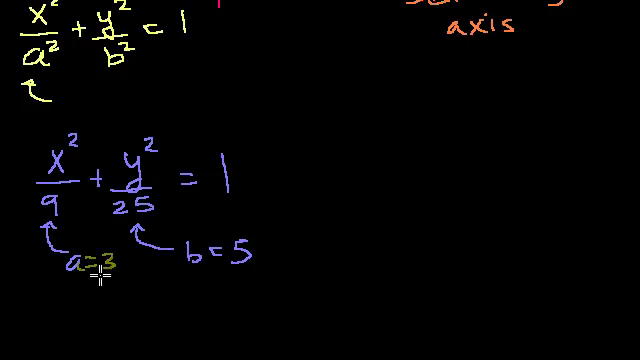 x²/a² + y²/b² = 1
axis
x²/9 + y²/25 = 1
a=3 b=5